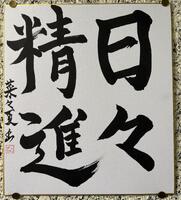 日々
精進
菜々夏書